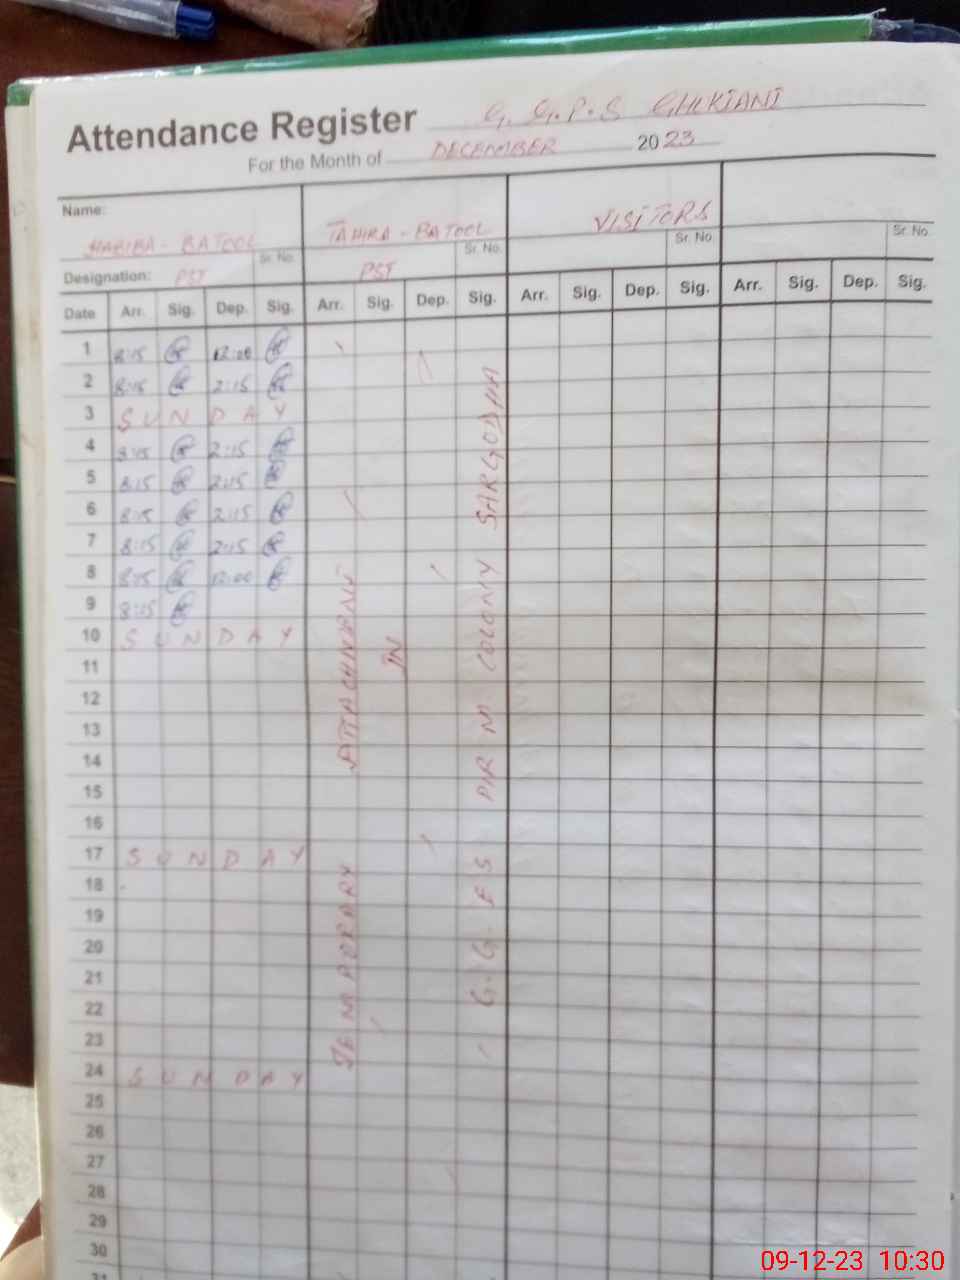 Attendance Register G. G.P.S GHEKIANI
For the Month of DECEMBER 2023
Name:
HABIBA - BATOOL TAHIRA - BATOOL VISITORS
Sr. No. Sr. No. Sr. No. Sr. No.
Designation: PST PST
Date Arr. Sig. Dep. Sig. Arr. Sig. Dep. Sig. Arr. Sig. Dep. Sig. Arr. Sig. Dep. Sig.
1 8:15 12:00
2 8:15 2:15
3 SUNDAY
4 8:15 2:15
5 8:15 2:15
6 8:15 2:15
7 8:15 2:15
8 8:15 12:00
9 8:15
10 SUNDAY
11
12
13
14
15
16
17 SUNDAY
18
19
20
21
22
23
24 SUNDAY
25
26
27
28
29
30
31
IN
G. G. E S PIR M. COLONY SARGODHA
09-12-23 10:30